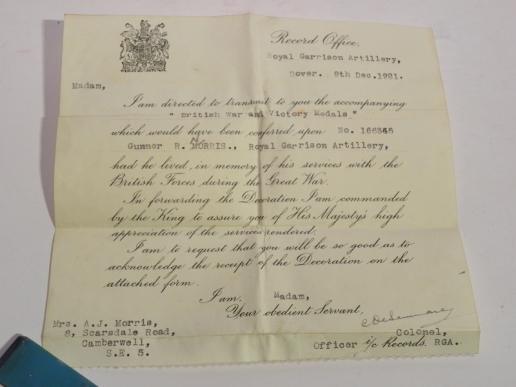 Record Office,
Royal Garrison Artillery,
Dover. 8th Dec.1921.
Madam,
I am directed to transmit to you the accompanying
" British War and Victory Medals "
which would have been conferred upon No.
Gunner R. MORRIS., Royal Garrison Artillery,
had he lived, in memory of his services with the
British Forces during the Great War.
In forwarding the Decoration I am commanded
by the King to assure you of His Majesty's high
appreciation of the services rendered.
I am to request that you will be so good as to
acknowledge the receipt of the Decoration on the
attached form.
I am, Madam,
Your obedient Servant,
Mrs. A.J. Morris,
8, Scarsdale Road,
Camberwell,
S.E. 5.
Colonel,
Officer i/c Records. RGA.